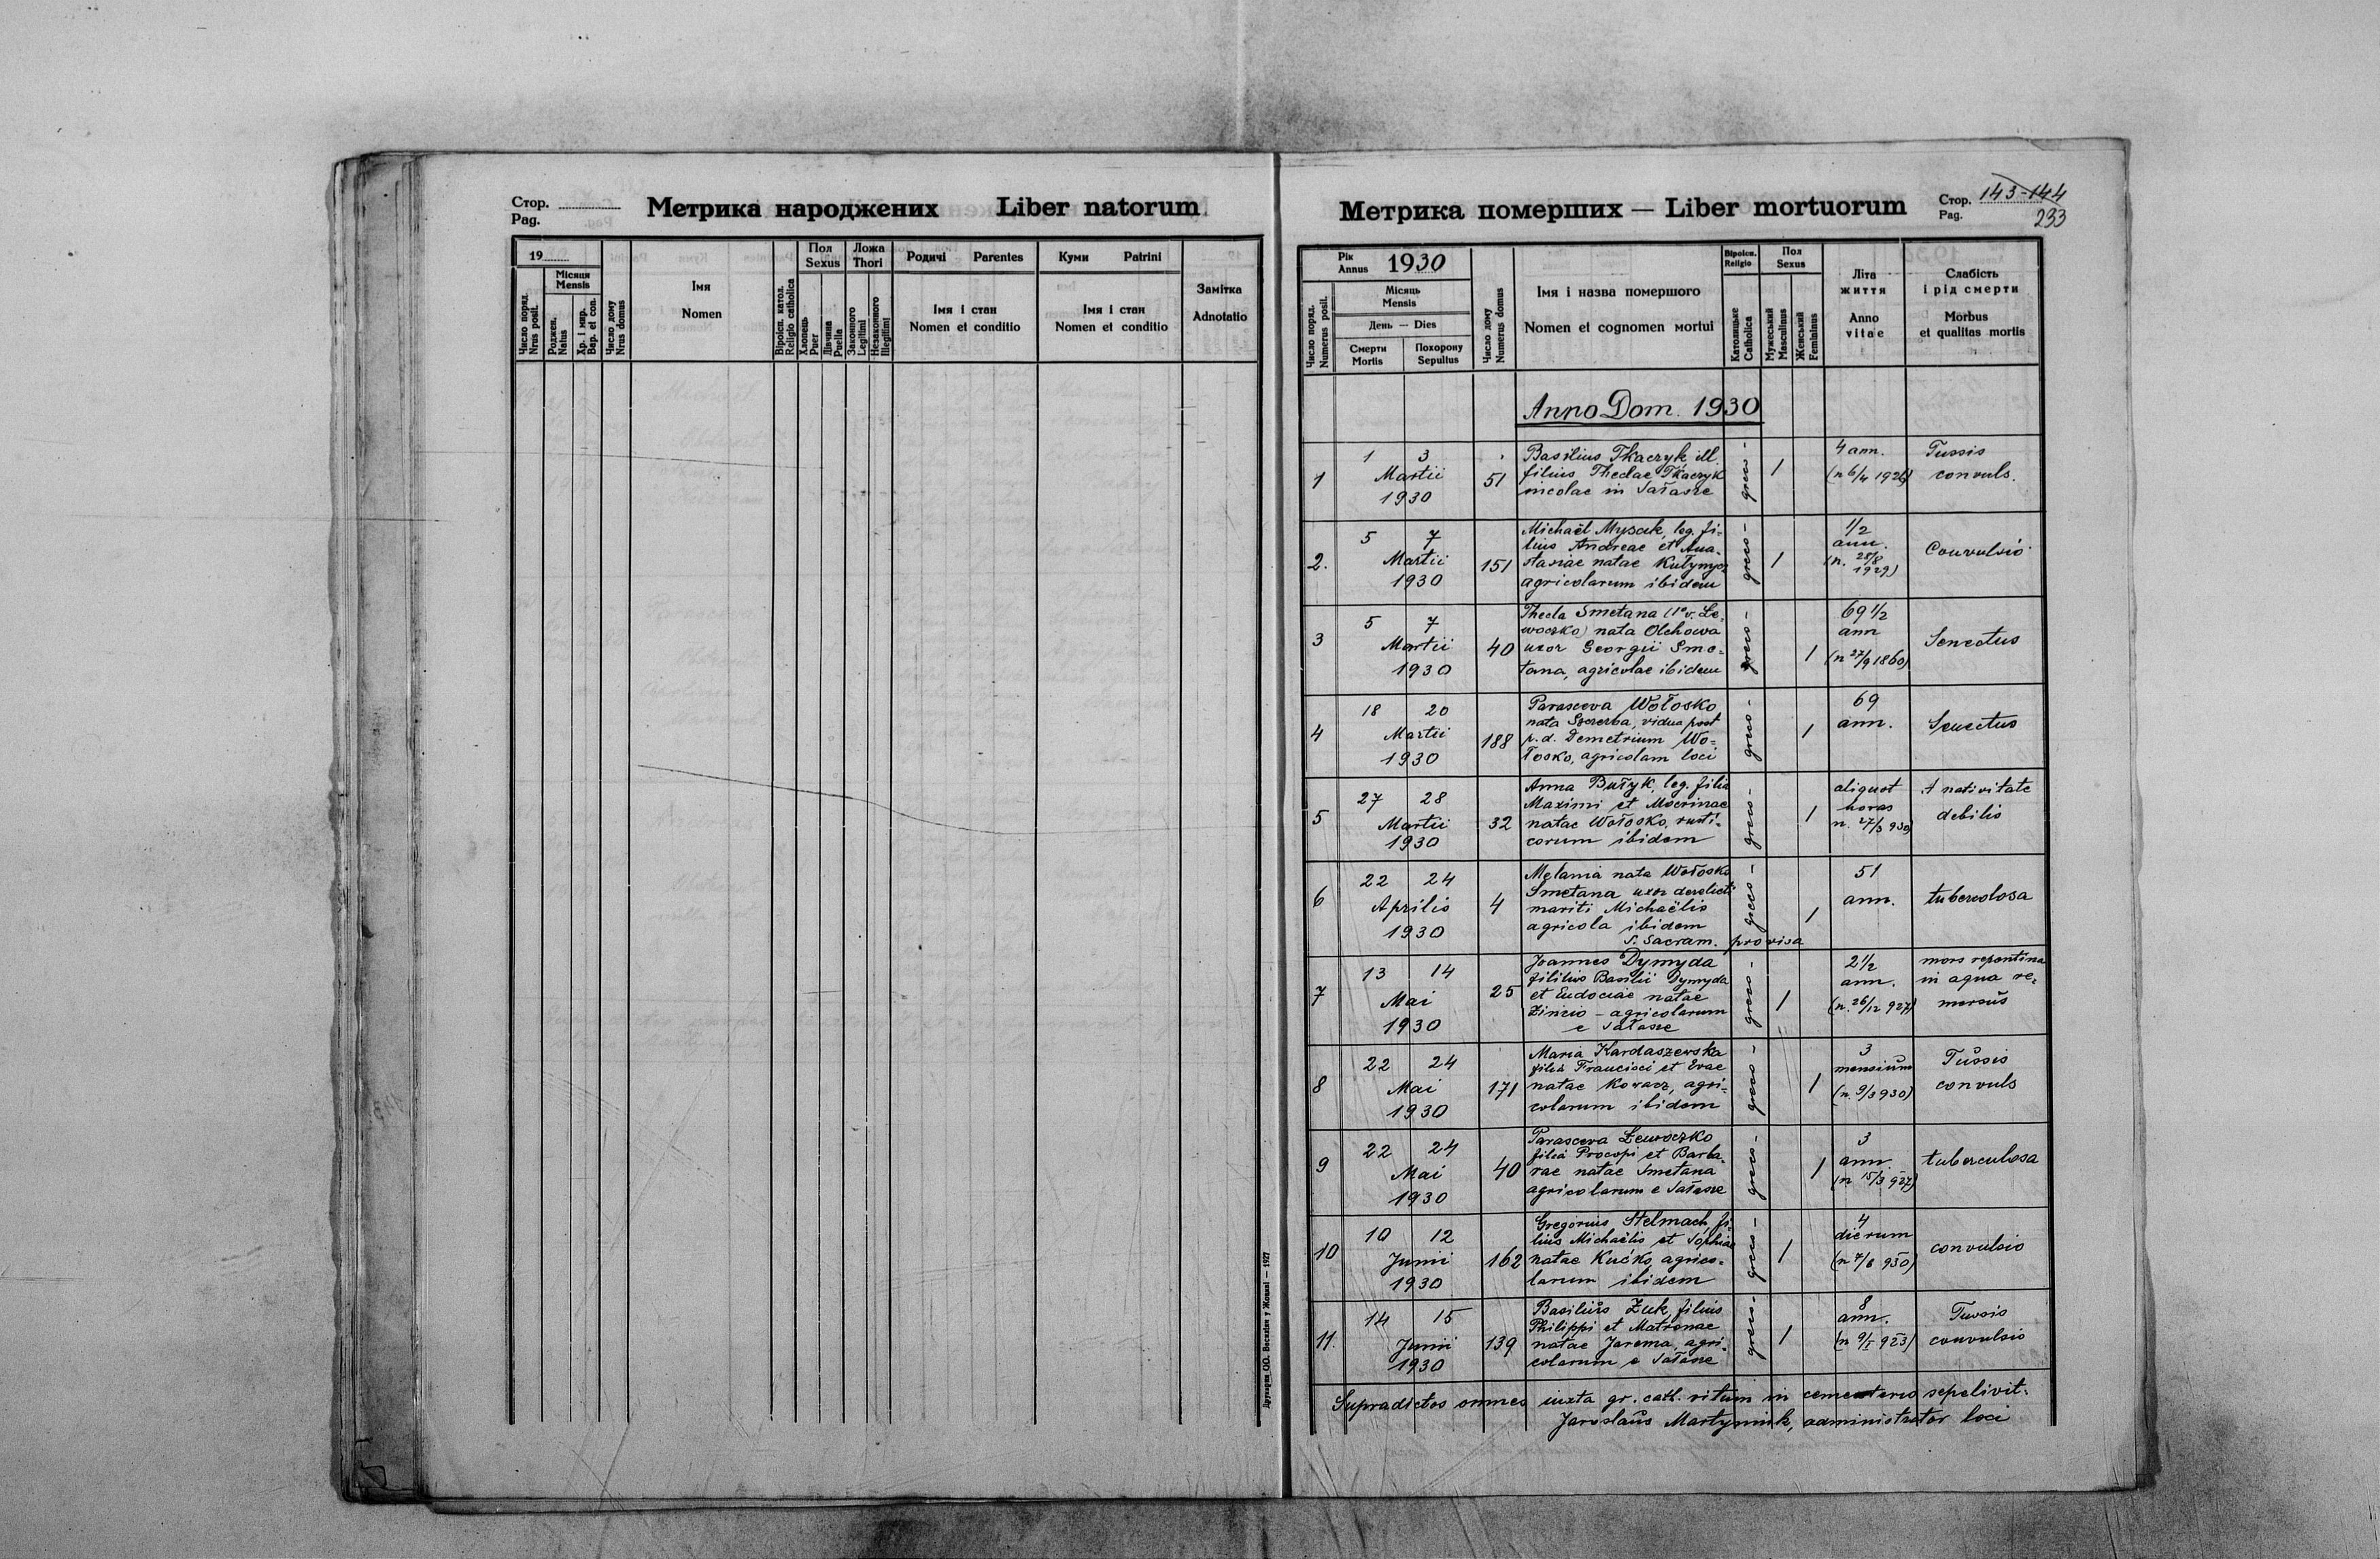 Стор.
Pag.
Метрика народжених Liber natorum
19
Число поряд.
Nrus posit.
Місяця
Mensis
Роджен.
Natus
Хр. і мир.
Bap. et con.
Число дому
Nrus domus
Імя
Nomen
Віроісп. катол.
Religio catholica
Пол
Sexus
Хлопець
Puer
Дівчина
Puella
Ложа
Thori
Законного
Legitimi
Незаконного
Illegitimi
Родичі Parentes
Імя і стан
Nomen et conditio
Куми Patrini
Імя і стан
Nomen et conditio
Замітка
Adnotatio
Друкарня ОО. Василіян у Жовкві — 1927
Метрика померших — Liber mortuorum
Стор. 143-144
Pag. 233
Рік
Annus 1930
Число поряд.
Numerus posit.
Місяць
Mensis
День — Dies
Смерти
Mortis
Похорону
Sepultus
Число дому
Numerus domus
Імя і назва помершого
Nomen et cognomen mortui
Віроісп.
Religio
Католицьке
Catholica
Пол
Sexus
Мужеський
Masculinus
Женський
Femininus
Літа
життя
Anno
vitae
Слабість
і рід смерти
Morbus
et qualitas mortis
Anno Dom. 1930
1
1 3
Martii
1930
51
Basilius Tkaczyk ill.
filius Theclae Tkaczyk
incolae in Sałasze
greco -
1
4 ann.
(n 6/4 1926)
Tussis
convuls.
2.
5 7
Martii
1930
151
Michaël Mysak, leg. fi-
lius Andreae et Ana-
stasiae natae
agricolarum ibidem
greco -
1
1/2
ann.
(n. 28/8
1929)
Convulsio
3
5 7
Martii
1930
40
Thecla Smetana (1º v. Le-
woczko) nata Olchowa
uxor Georgii Sme-
tana, agricolae ibidem
greco -
1
69 1/2
ann
(n 27/9 1860)
Senectus
4
18 20
Martii
1930
188
Parascева Wołosko
nata Szczerba, vidua post
p. d. Demetrium Wo-
łosko, agricolam loci
greco -
1
69
ann.
Senectus
5
27 28
Martii
1930
32
Anna Bułyk, leg. filia
Maximi et Macrinae
natae Wołosko, rusti-
corum ibidem
greco -
1
aliquot
horas
n. 27/3 930)
A nativitate
debilis
6
22 24
Aprilis
1930
4
Melania nata Wołosko
Smetana uxor derelicti
mariti Michaëlis
agricola ibidem
S. Sacram. provisa
greco -
1
51
ann.
tuberculosa
7
13 14
Mai
1930
25
Joannes Dymyda
fililius Basilii Dymyda
et Eudociae natae
Zinzio - agricolarum
e Sałasze
greco -
1
2 1/2
ann.
(n. 26/12 927)
mors repentina
in aqua re-
mersus
8
22 24
Mai
1930
171
Maria Kardaszewska
filia Francisci et Evae
natae Kowacz, agri-
colarum ibidem
greco -
1
3
mensium
(n. 9/3 930)
Tussis
convuls
9
22 24
Mai
1930
40
Parasceva Lewoczko
filia Procopi et Barba-
rae natae Smetana
agricolarum e Sałasze
greco -
1
3
ann.
(n 15/3 927)
tuberculosa
10
10 12
Junii
1930
162
Gregorius Stelmach, fi-
lius Michaëlis et Sophiae
natae Kućko, agrico-
larum ibidem
greco -
1
4
dierum
(n 7/6 930)
convulsio
11.
14 15
Junii
1930
139
Basilius Żuk, filius
Philippi et Matronae
natae Jarema, agri-
colarum e Sałasze
greco -
1
8
ann.
(n 9/I 923)
Tussis
convulsio
Supradictos omnes iuxta gr. cath. ritum in cementerio sepelivit.
Jaroslaus Martyniuk, administrator loci